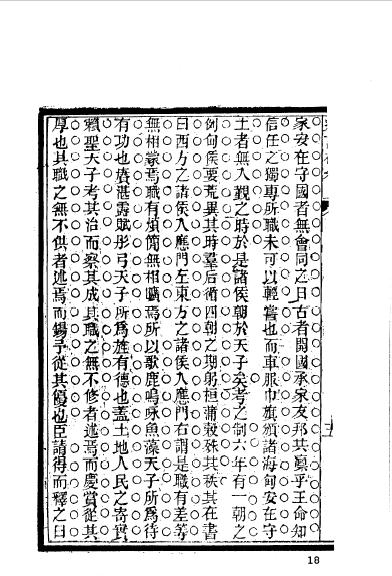 家安在守國者無會同之日古者開國承家友邦共禀乎王命知
信任之獨專所職未可以輕嘗也而車服巾旗頒諸海甸安在守
土者無入覲之時於是諸侯朝於天子矣考之制六年有一朝之
例甸侯要荒異其時羣后循四朝之期躬桓蒲穀殊其秩其在書
曰西方之諸侯入應門左東方之諸侯入應門右謂是職有差等
無相踰焉職有煩簡無相曠焉所以歌鹿鳴咏魚藻天子所為待
有功也賡湛露賦彤弓天子所為旌有德也蓋土地人民之寄實
賴聖天子考其治而察其成其職之無不修者述焉而慶賞從其
厚也其職之無不供者述焉而錫予從其優也臣請得而釋之曰
18